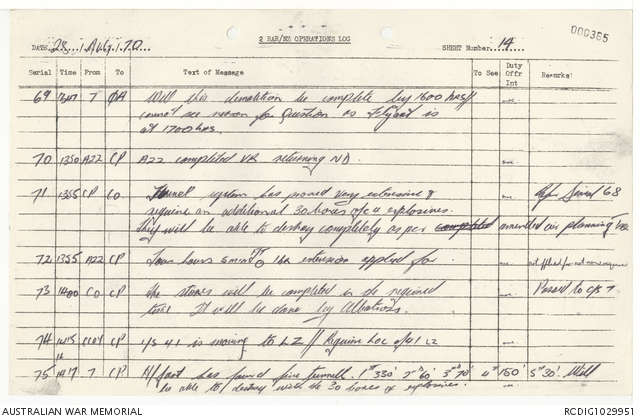 000365
2 RAR/NZ OPERATIONS LOG
DATE 28 / AUG / 70 SHEET Number 14
Serial Time From To Text of Message To See Duty Offr Int Remarks
69 1347 7 Will this demolition be complete by 1600 hrs //
cannot see reason for question as is
at 1700 hrs.
70 1350 A22 CP A22 completed VR returning ND.
71 1355 CP CO Tunnel system has proved very extensive & Serial 68
require an additional 30 boxes of C4 explosives.
They will be able to destroy completely as per completed amended air planning
72 1355 A22 CP hours 1 hr extension applied for.
73 1400 CO CP The stores will be completed in the required Passed to C/S 7
time It will be done by Albatross.
74 1415 CP C/S 41 is moving to LZ // Require Loc of 41 LZ
75 1417 7 CP has found five tunnels. 1st 330' 2nd 60' 3rd 70' 4th 150' 5th 30' Will
be able to destroy with the 30 boxes of explosives.
AUSTRALIAN WAR MEMORIAL RCDIG102995